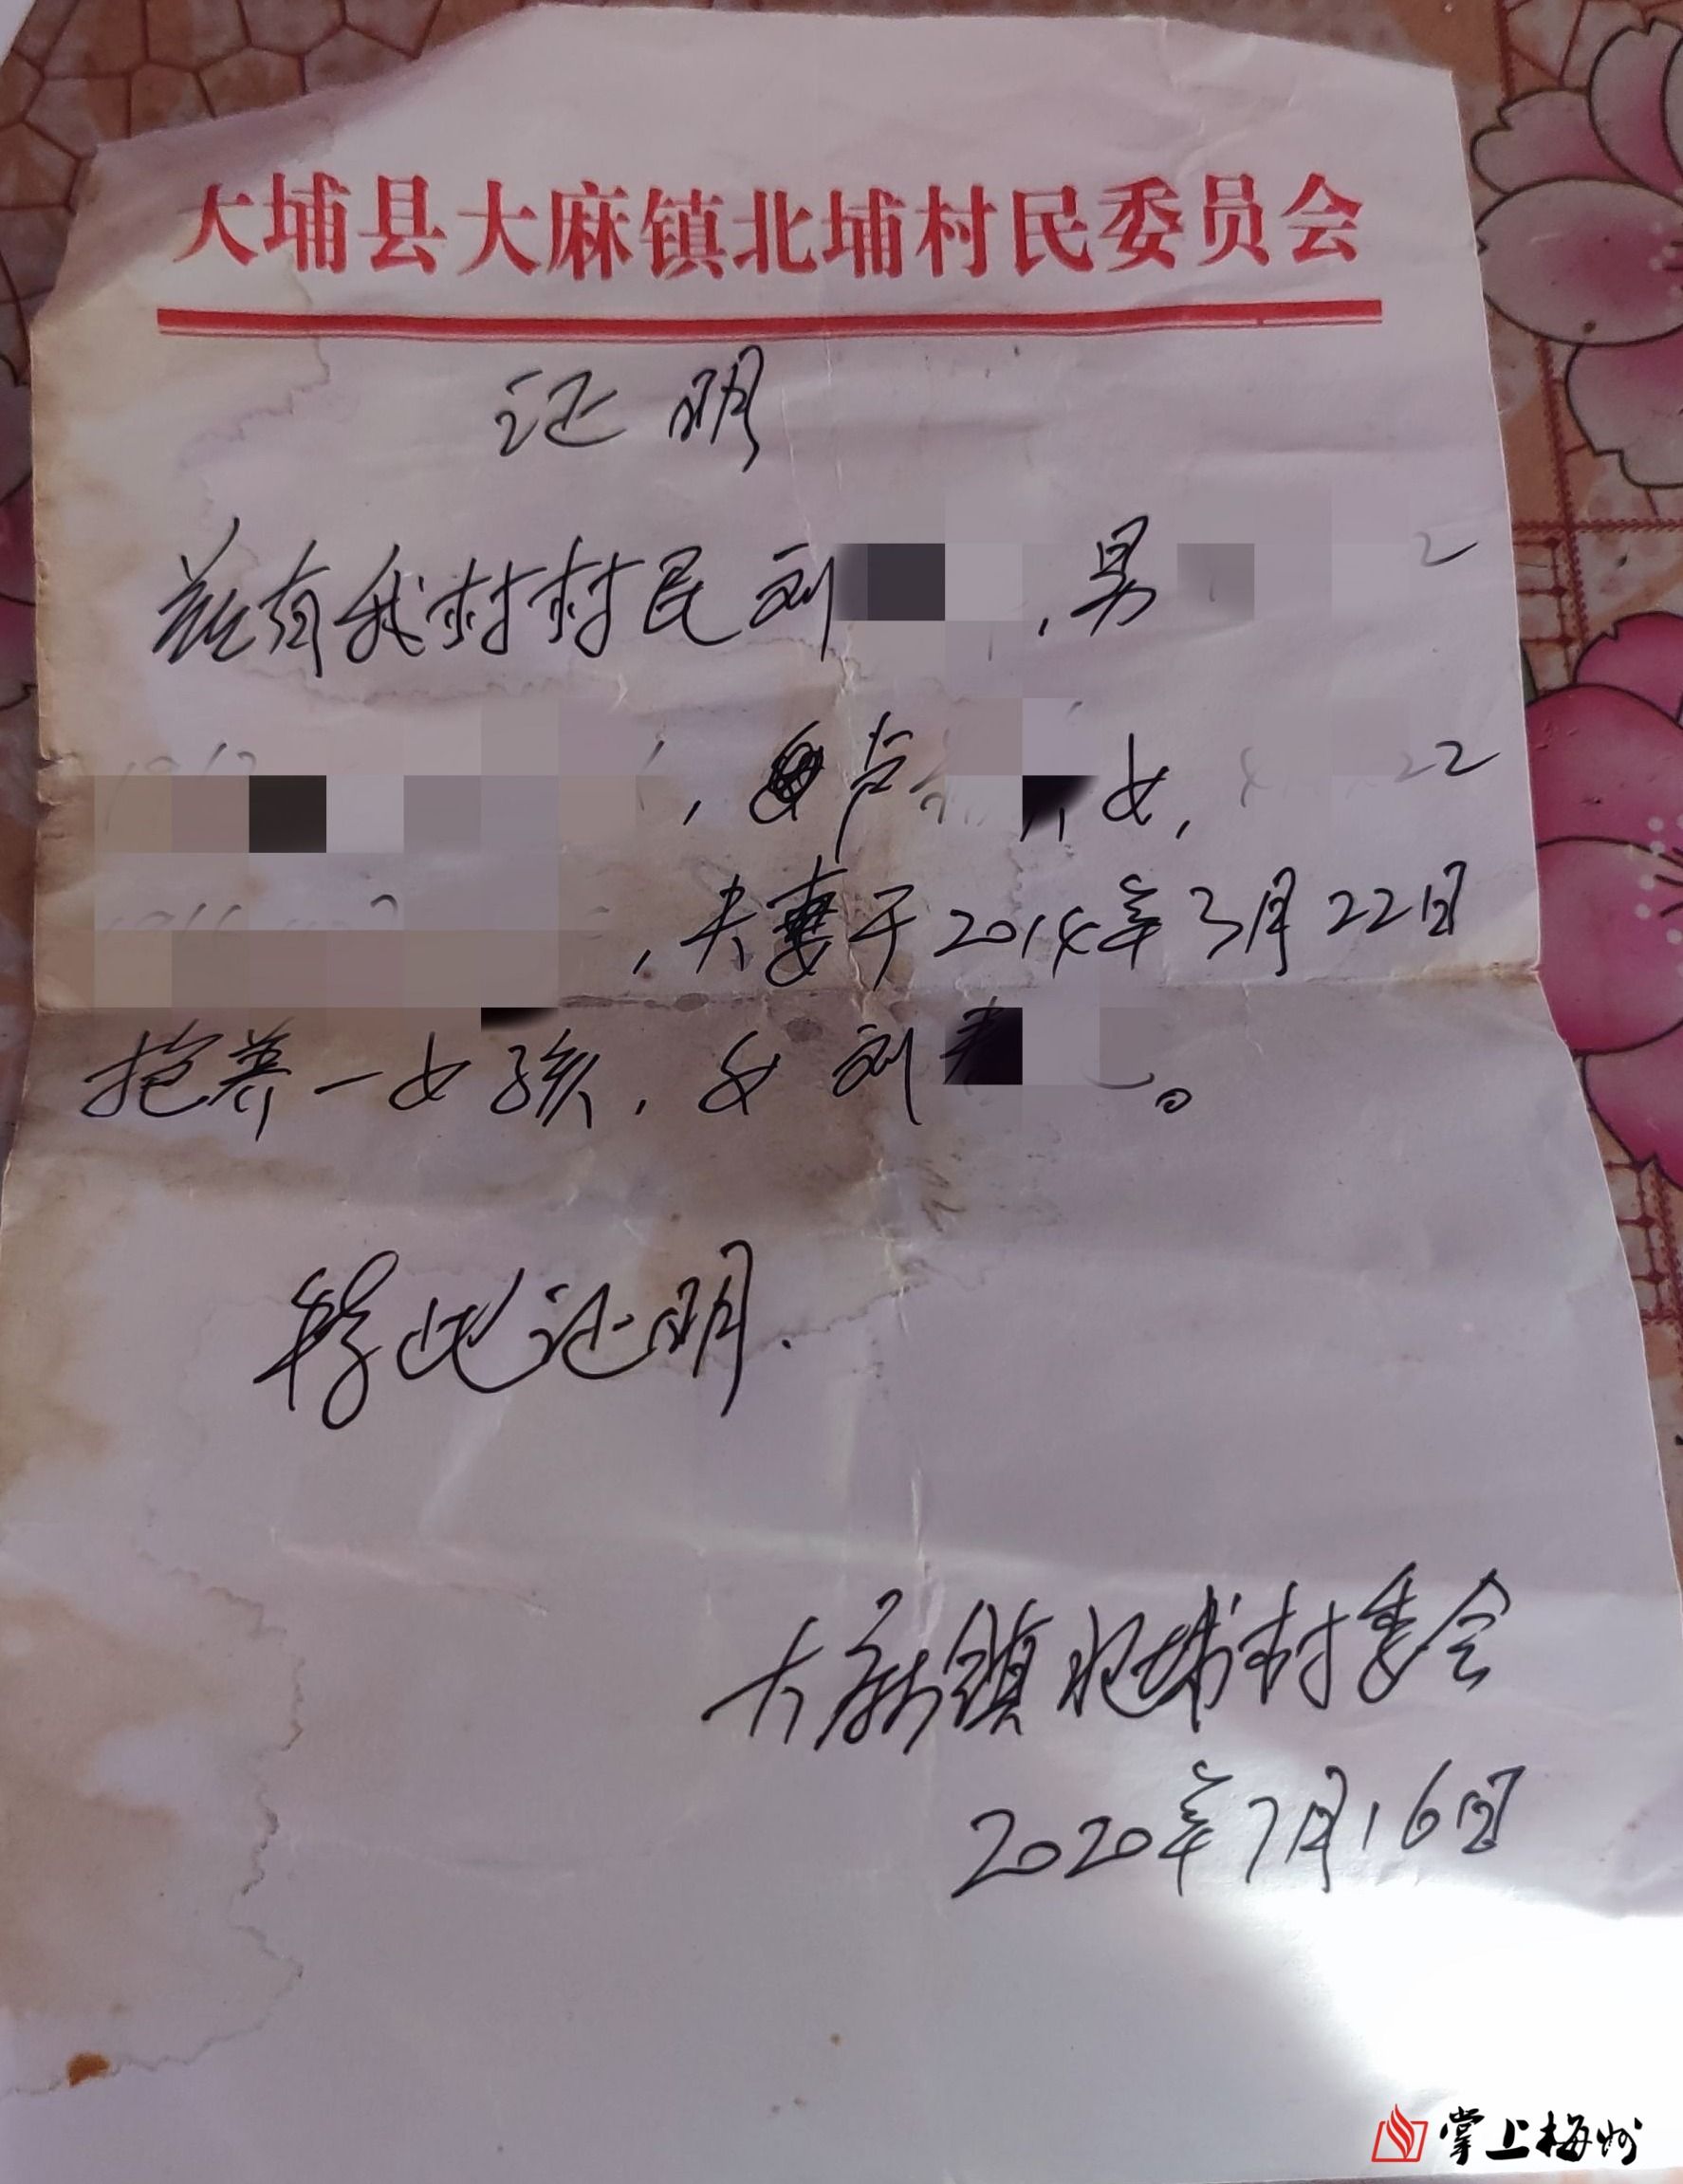 大埔县大麻镇北埔村民委员会
证明
兹有我村村民刘 ,男 2
, 卢 女, 22
,夫妻于2014年3月22日
抱养一女孩,女刘 。
特此证明.
大麻镇北埔村委会
2020年7月16日
掌上梅州